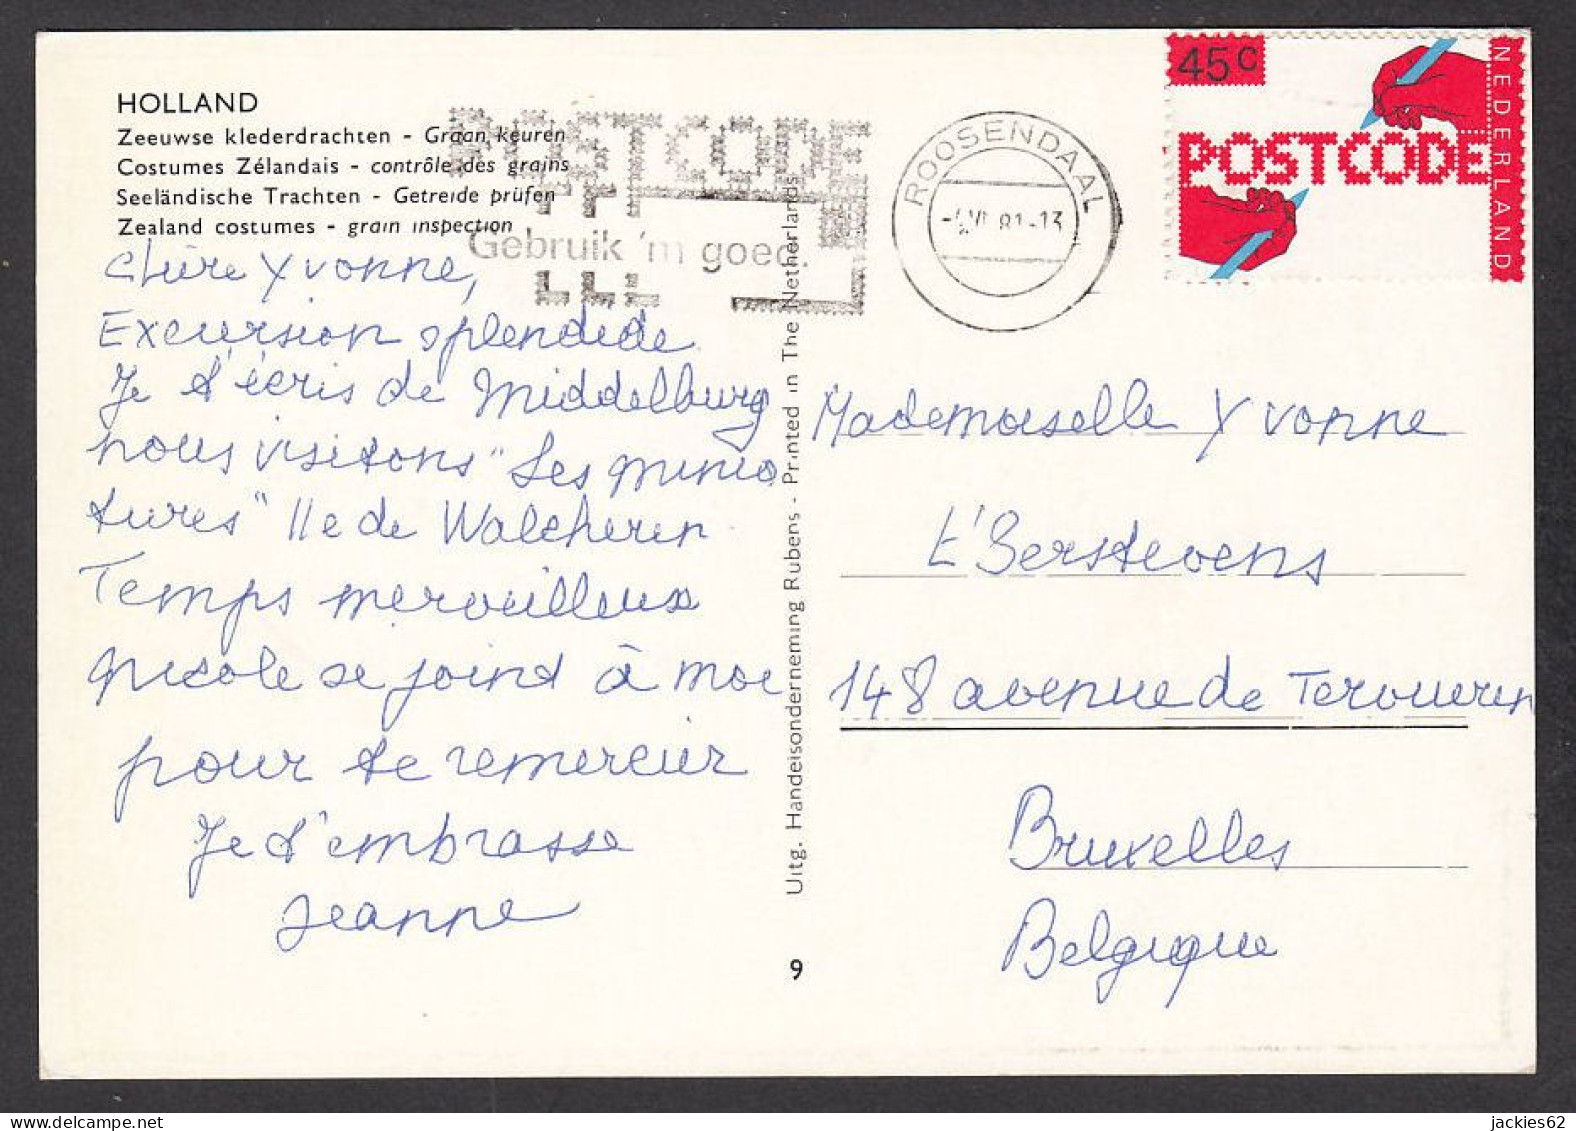 HOLLAND
Zeeuwse klederdrachten - Graan keuren
Costumes Zélandais - contrôle des grains
Seeländische Trachten - Getreide prüfen
Zealand costumes - grain inspection
POSTCODE
Gebruik 'm goed.
ROOSENDAAL
VI. 81-13
45c
POSTCODE
NEDERLAND
Chère Yvonne,
Excursion splendide
Je t'écris de Middelburg
nous visitons "Les minia
tures" Ile de Walcheren
Temps merveilleux
Nicole se joint à moi
pour te remercier
Je t'embrasse
Jeanne
Uitg. Handelsonderneming Rubens - Printed in The Netherlands
9
Mademoiselle Yvonne
t'Serstevens
148 avenue de Tervueren
Bruxelles
Belgique
jackies62